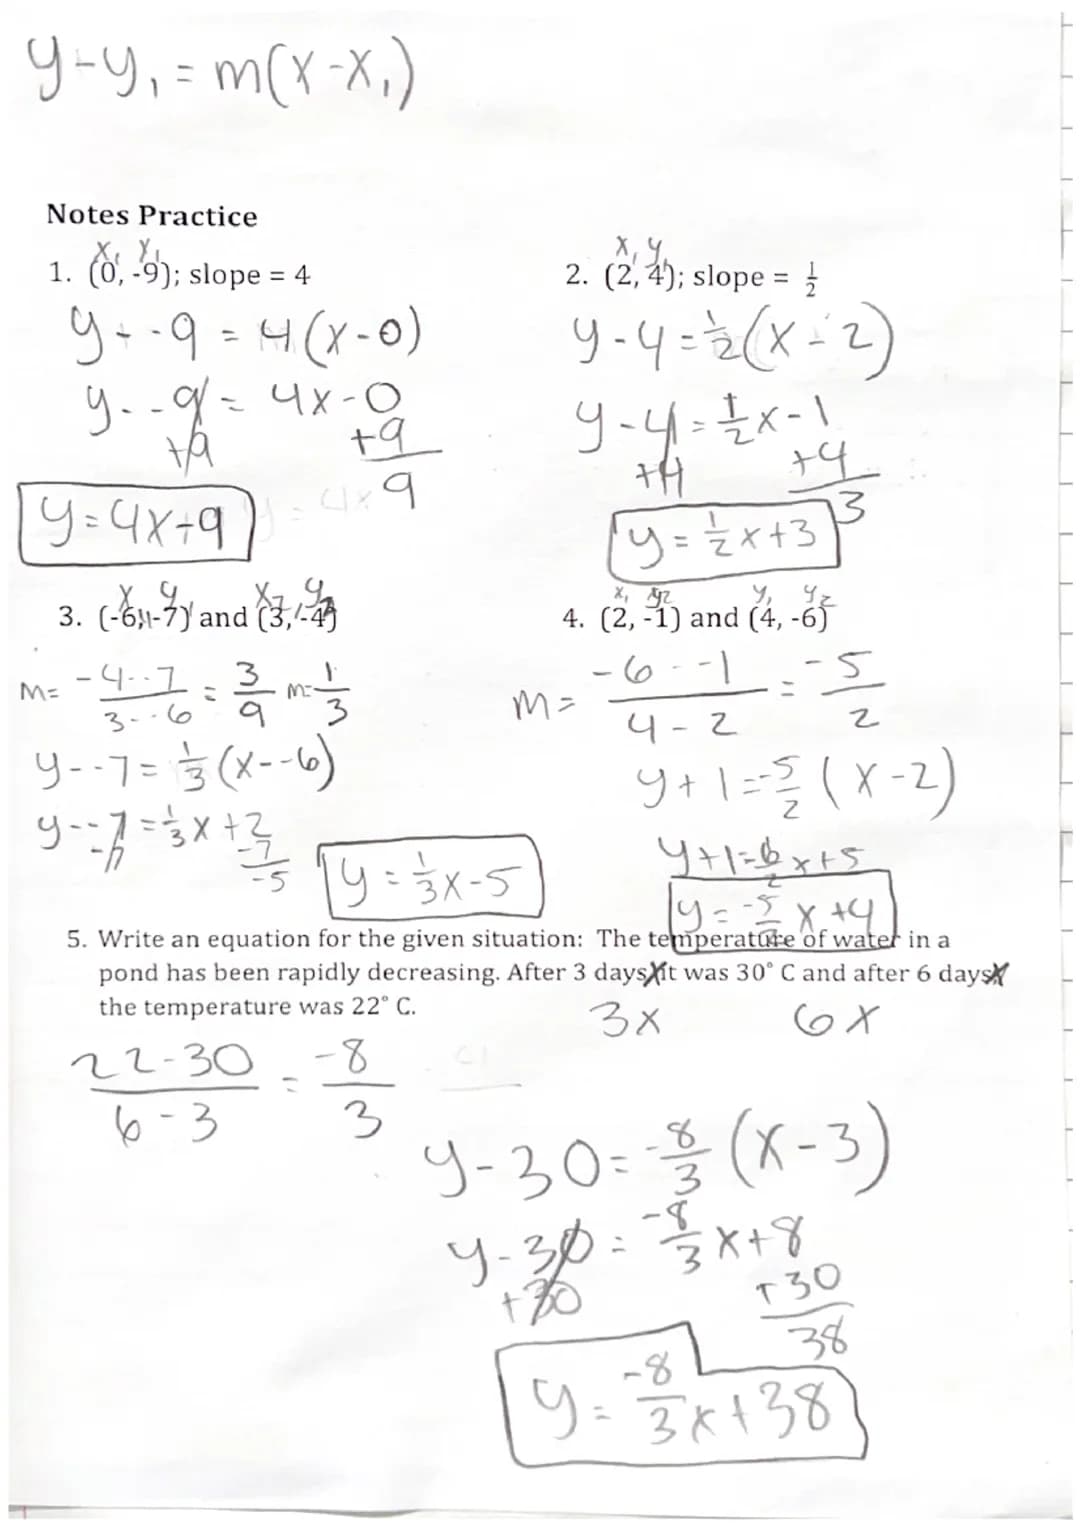 y-y₁ = m(x-x₁)
Notes Practice
x₁ y₁
1. (0, -9); slope = 4
y - -9 = 4(x-0)
y - -9 = 4x-0
+9 +9
9
y=4x+9
x₁ y₁
2. (2, 4); slope = 1/2
y-4=1/2(x-2)
y-4=1/2x-1
+4 +4
3
y = 1/2x+3
3. (-6, -7) and (3, -4)
m= -4--7/3--6 = 3/9 m=1/3
y--7=1/3(x--6)
y--7=1/3x+2
-7 -7
-5
y=1/3x-5
x₁ y₂ y₁ y₂
4. (2, -1) and (4, -6)
m= -6--1/4-2 = -5/2
y+1=-5/2(x-2)
y+1= x+5
y=-5/2x+4
5. Write an equation for the given situation: The temperature of water in a
pond has been rapidly decreasing. After 3 days it was 30° C and after 6 days
the temperature was 22° C.
3x 6x
22-30/6-3 = -8/3
y-30=-8/3(x-3)
y-30=-8/3x+8
+30 +30
38
y=-8/3x+38